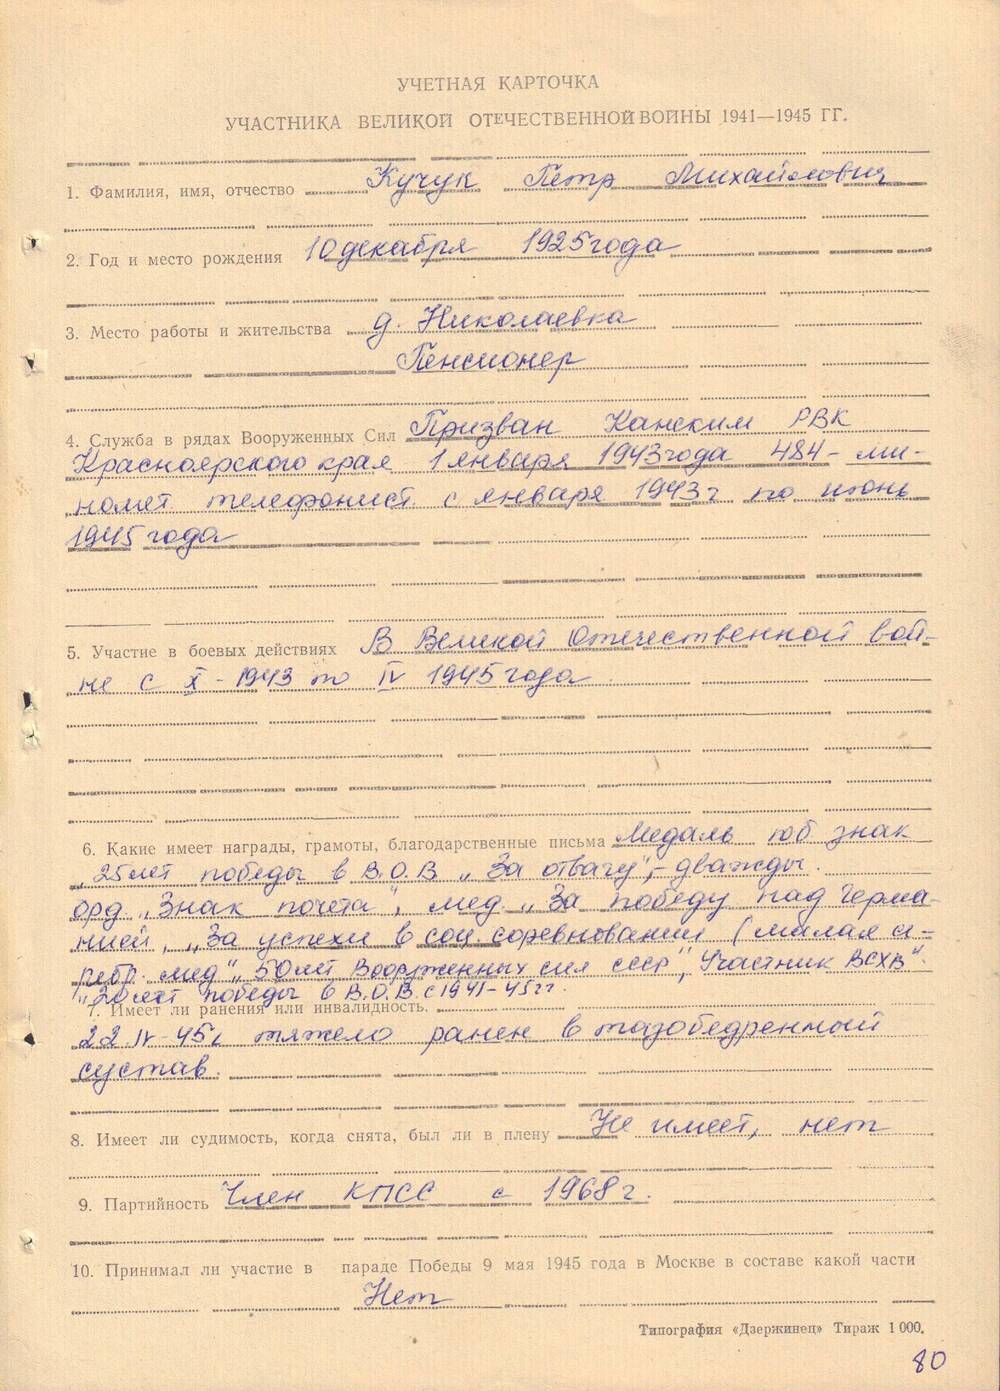 УЧЕТНАЯ КАРТОЧКА
УЧАСТНИКА ВЕЛИКОЙ ОТЕЧЕСТВЕННОЙ ВОЙНЫ 1941—1945 ГГ.
1. Фамилия, имя, отчество Кучук Петр Михайлович
2. Год и место рождения 10 декабря 1925 года
3. Место работы и жительства д. Николаевка
Пенсионер
4. Служба в рядах Вооруженных Сил Призван Канским РВК
Красноярского края 1 января 1943 года 484 - ми-
номет. телефонист. с января 1943 г по июнь
1945 года
5. Участие в боевых действиях В Великой Отечественной вой-
не с X - 1943 по IV 1945 года
6. Какие имеет награды, грамоты, благодарственные письма Медаль юб. знак
"25 лет победы в В.О.В "За отвагу",- дважды.
орд "Знак почета", мед. "За победу над Герма-
нией, "За успехи в соц. соревновании (малая се-
ребр. мед", "50 лет Вооруженных сил СССР", Участник ВСХВ".
"20 лет победы в В.О.В. с 1941-45 гг.
7. Имеет ли ранения или инвалидность.
22.IV-45г тяжело ранен в тазобедренный
сустав.
8. Имеет ли судимость, когда снята, был ли в плену Не имеет, нет
9. Партийность Член КПСС с 1968 г.
10. Принимал ли участие в параде Победы 9 мая 1945 года в Москве в составе какой части
Нет
Типография «Дзержинец» Тираж 1 000.
80